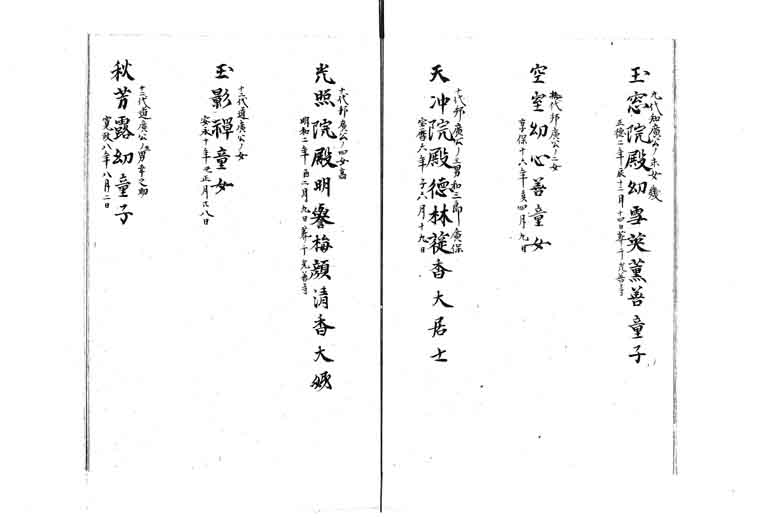 九代知廣公ノ末女慶
玉窓院殿幼雪英薫善童子
正徳二年辰十二月十四日葬于光善寺
十代邦廣公ノ二女
空室幼心善童女
享保十六年亥四月九日
十代邦廣公ノ三男和三郎廣保
天冲院殿德林 香大居士
宝暦六年子六月十九日
十代邦廣公ノ四女
光照院殿明 梅顔清香大姉
明和二年酉二月九日葬于光善寺
十三代道廣公ノ女
玉影禪童女
安永十年 正月廿八日
十三代道廣公 男幸之助
秋芳露幼童子
寛政八年八月二日